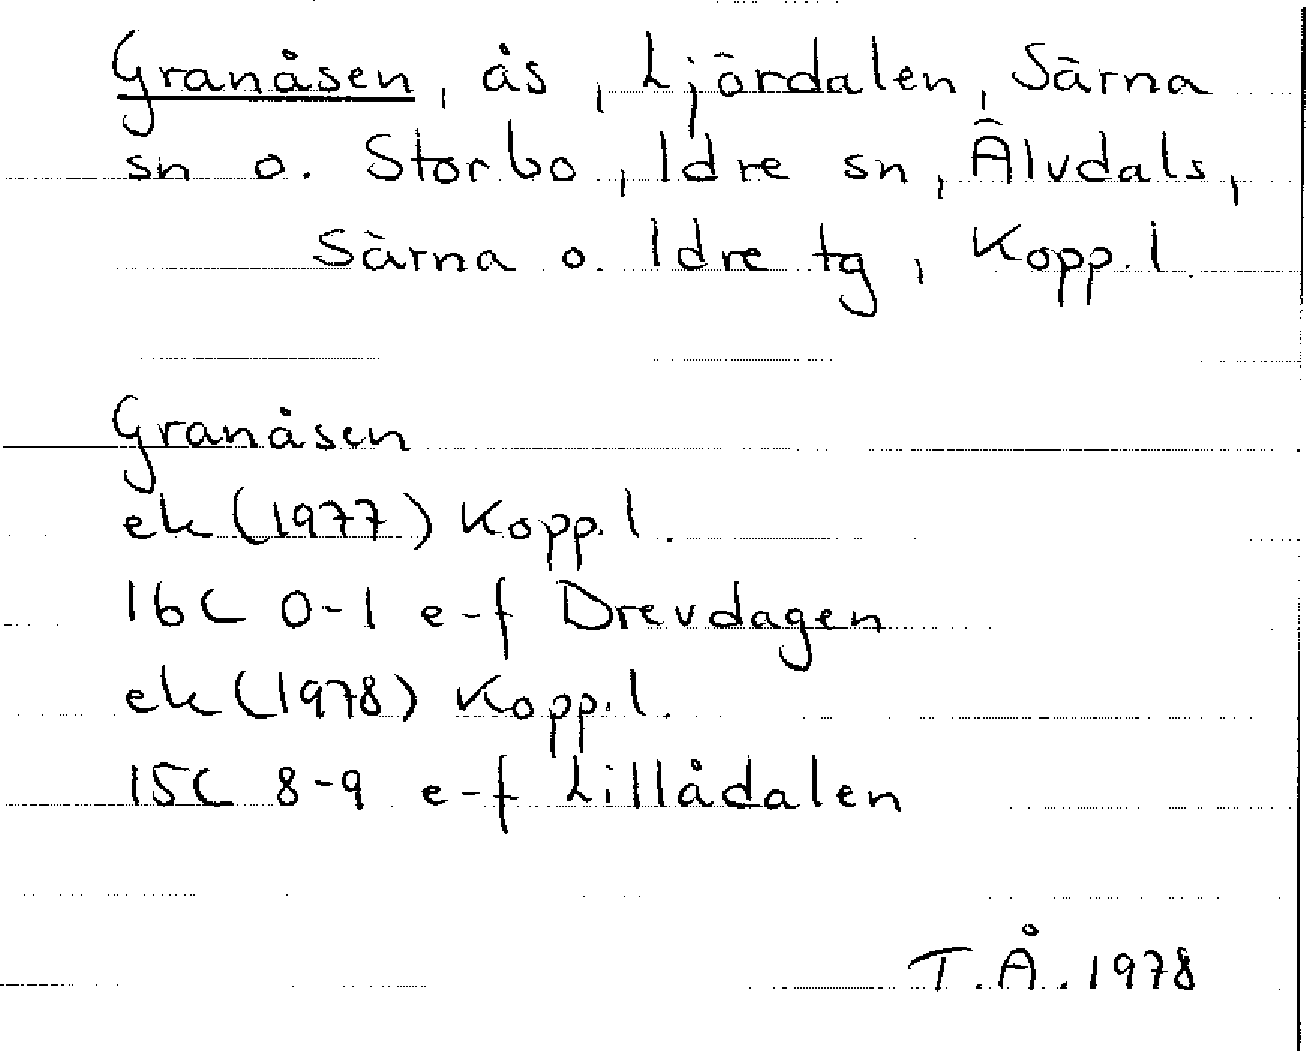 Granåsen, ås, Ljördalen, Särna
sn o. Storbo, Idre sn, Älvdals,
Särna o. Idre tg, Kopp. l.
Granåsen
ek (1977) Kopp. l.
16C 0-1 e-f Drevdagen
ek (1978) Kopp. l.
15C 8-9 e-f Lillådalen
T.Å. 1978